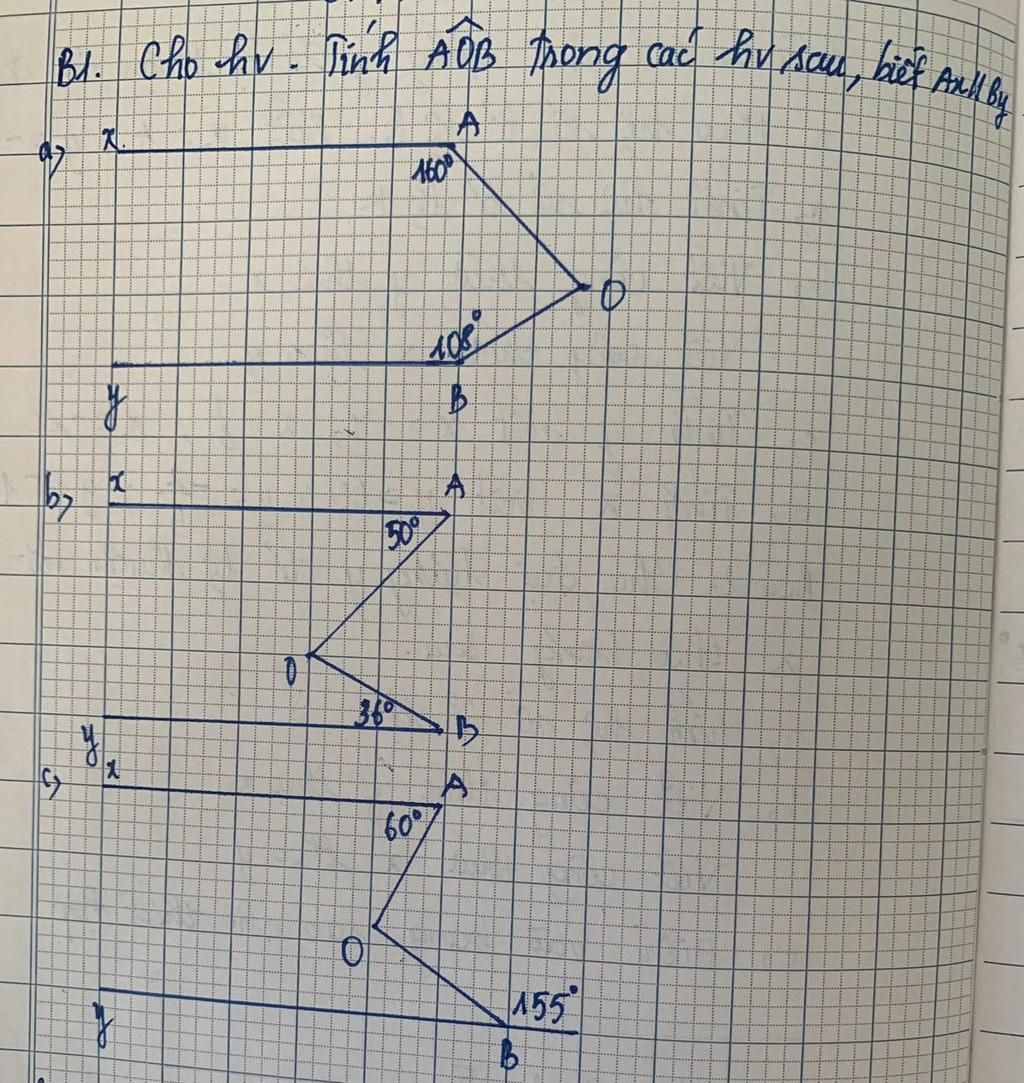 B1. Cho hv. Tính AÔB trong các hv sau, biết Ax // By
a) x A
160°
O
108°
y B
b) x A
50°
O
36°
y B
c) x A
60°
O
155°
y B